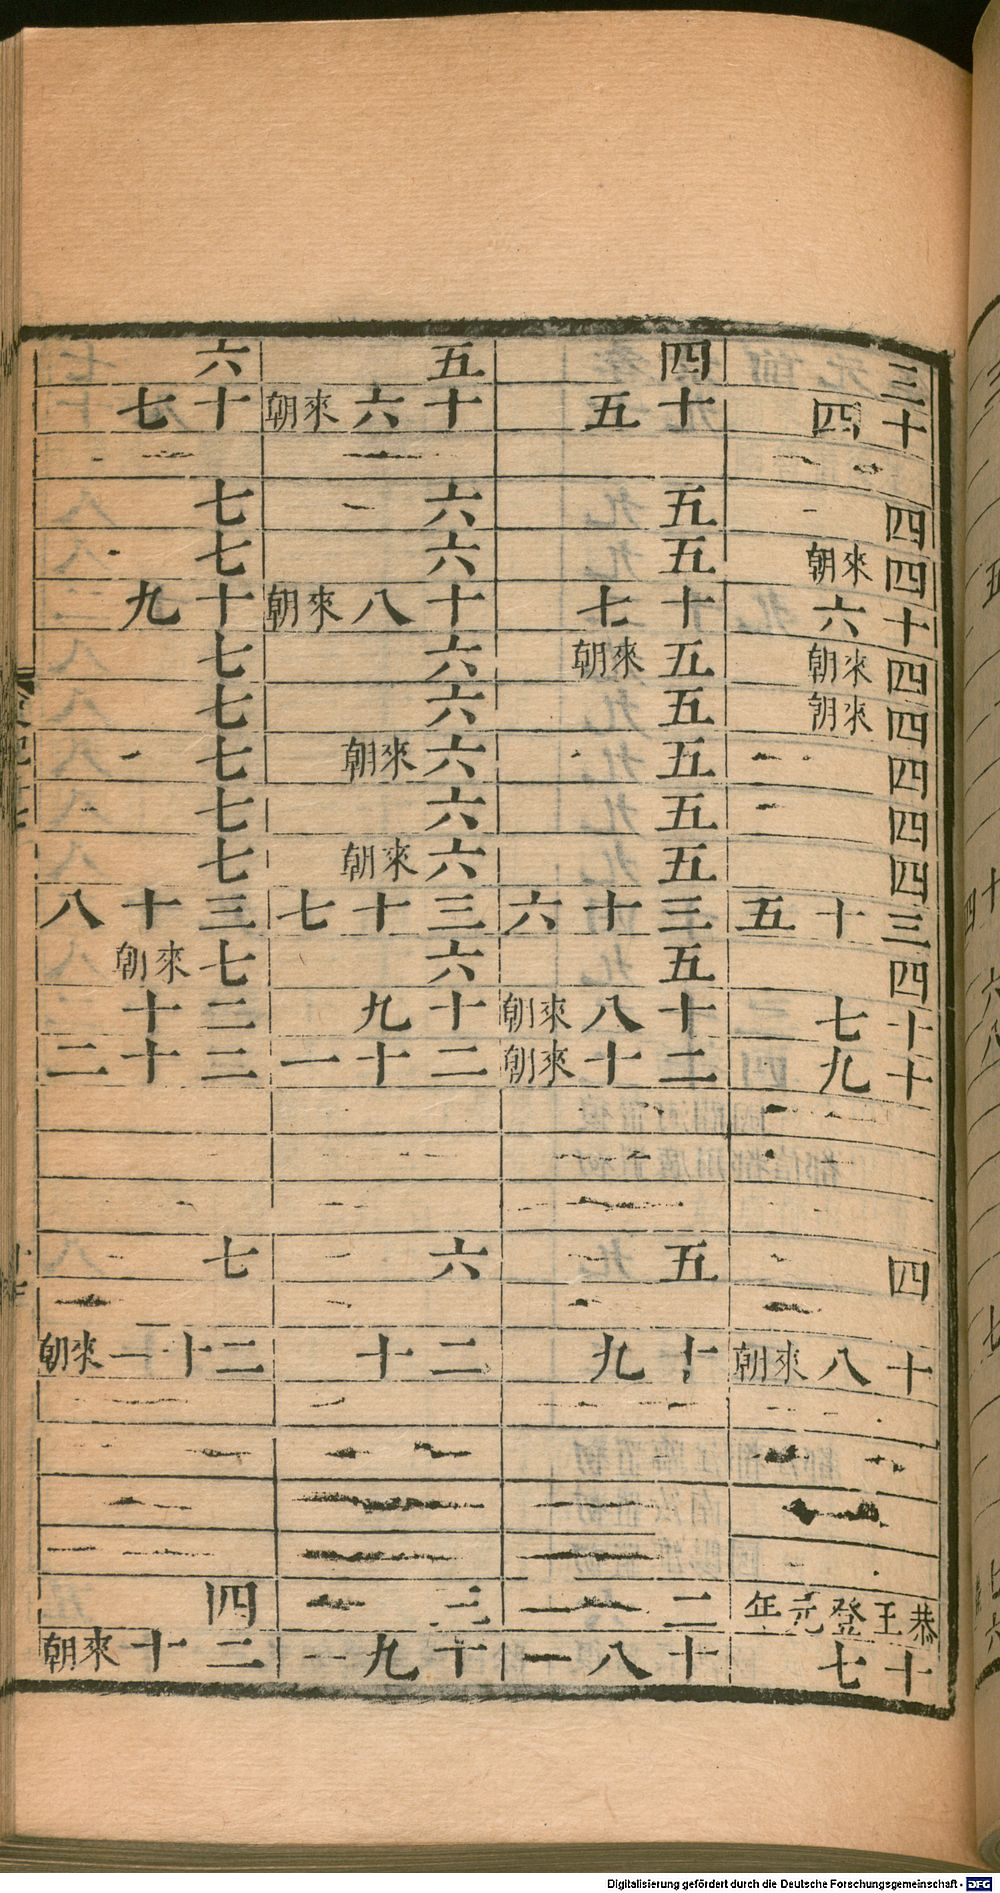 三
十四
四
四來朝
十六
四來朝
四來朝
四
四
四
三十五
四
十七
十九
四
十八來朝
恭王登元年
十七
四
十五
五
五
十七
五來朝
五
五
五
五
三十六
五
十八來朝
二十來朝
五
十九
二
十八
五
十六來朝
六
六
十八來朝
六
六
六來朝
六
六來朝
三十七
六
十九
二十一
六
二十
三
十九
六
十七
七
七
十九
七
七
七
七
七
三十八
七來朝
二十
二十二
七
二十一來朝
四
二十來朝
Digitalisierung gefördert durch die Deutsche Forschungsgemeinschaft - DFG